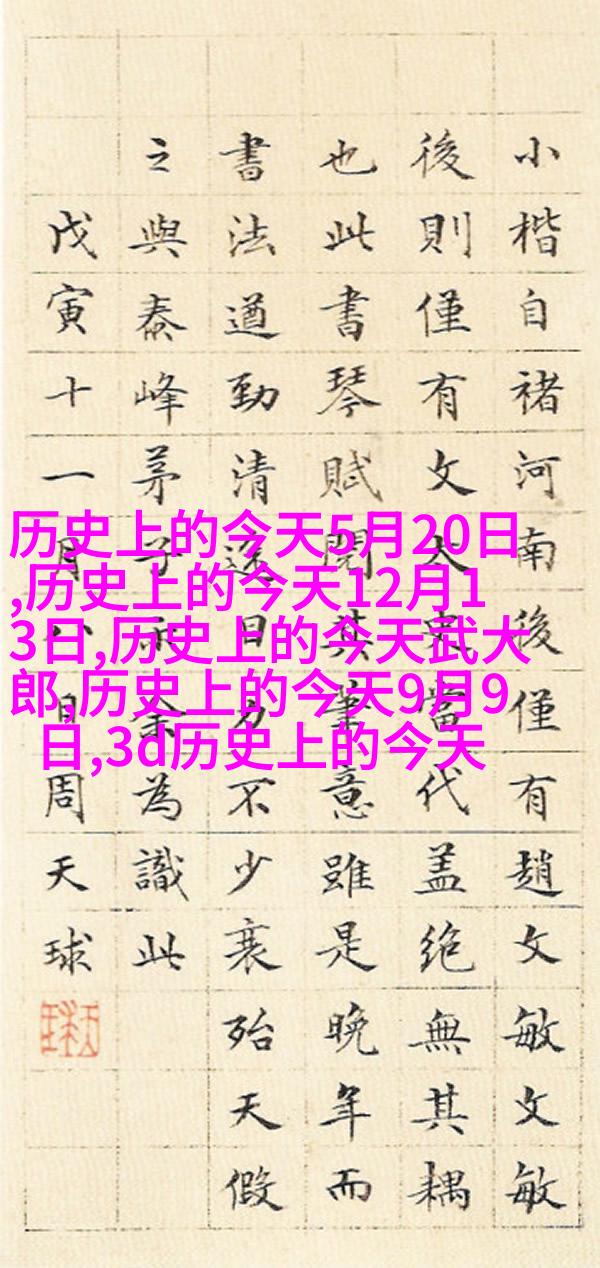 历史上的今天5月20日
,历史上的今天12月1
3日,历史上的今天武大
郎,历史上的今天9月9
日,3d历史上的今天
小楷自褚河南後僅有趙文敏文敏
後則僅有文太史當代盖絶無其耦
也此書琴賦閱其筆意雖是晚年而
書法遒勁清逸目力不少衰殆天假
之與泰峰茅子余為識此
戊寅十一月八日周天球